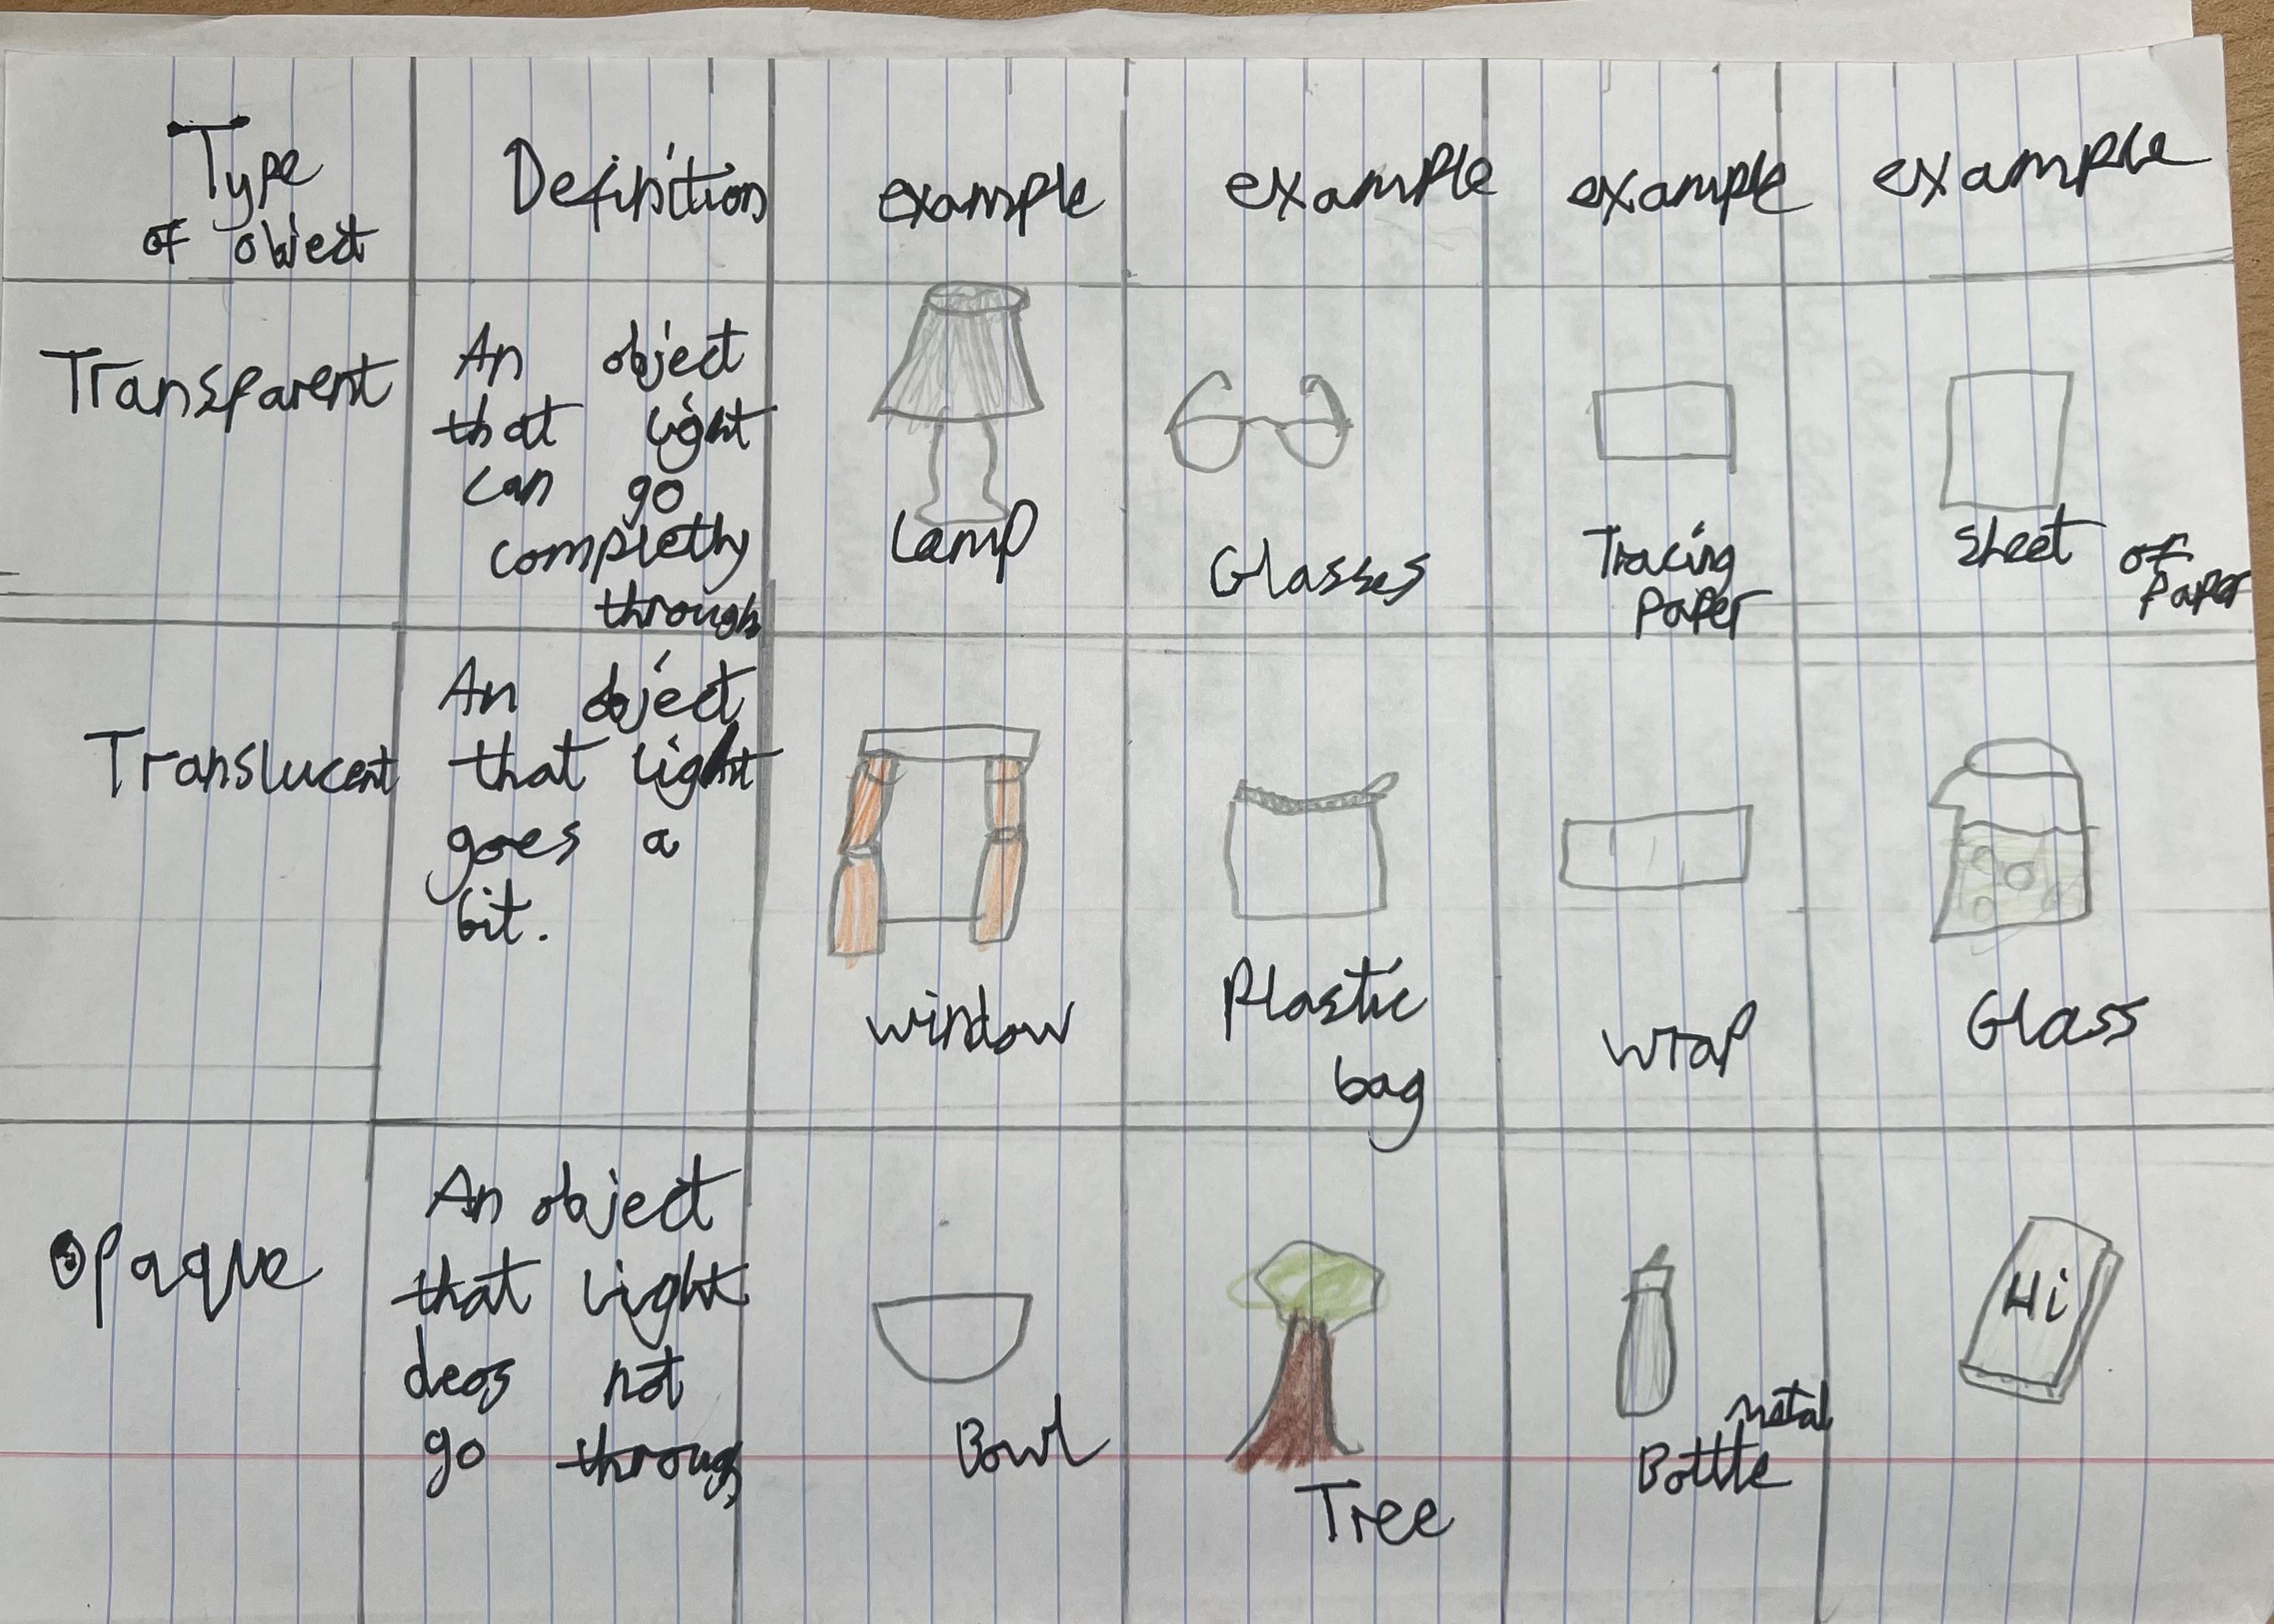 Type
of object
Definition
example
example
example
example
Transparent
An object
that light
can go
completly
through
Lamp
Glasses
Tracing
Paper
Sheet of
Paper
Translucent
An object
that light
goes a
bit.
window
Plastic
bag
wrap
Glass
Opaque
An object
that light
deos not
go throug
Bowl
Tree
metal
Bottle
Hi